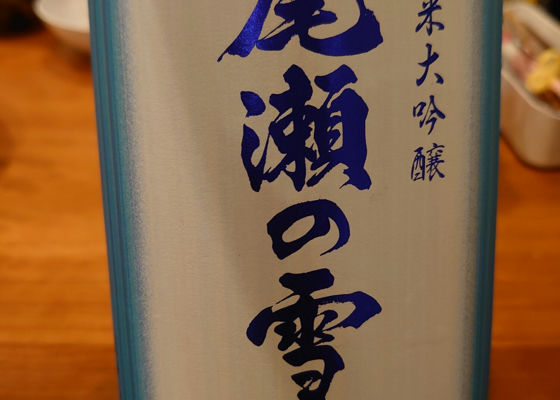 米大吟醸
尾瀬の雪